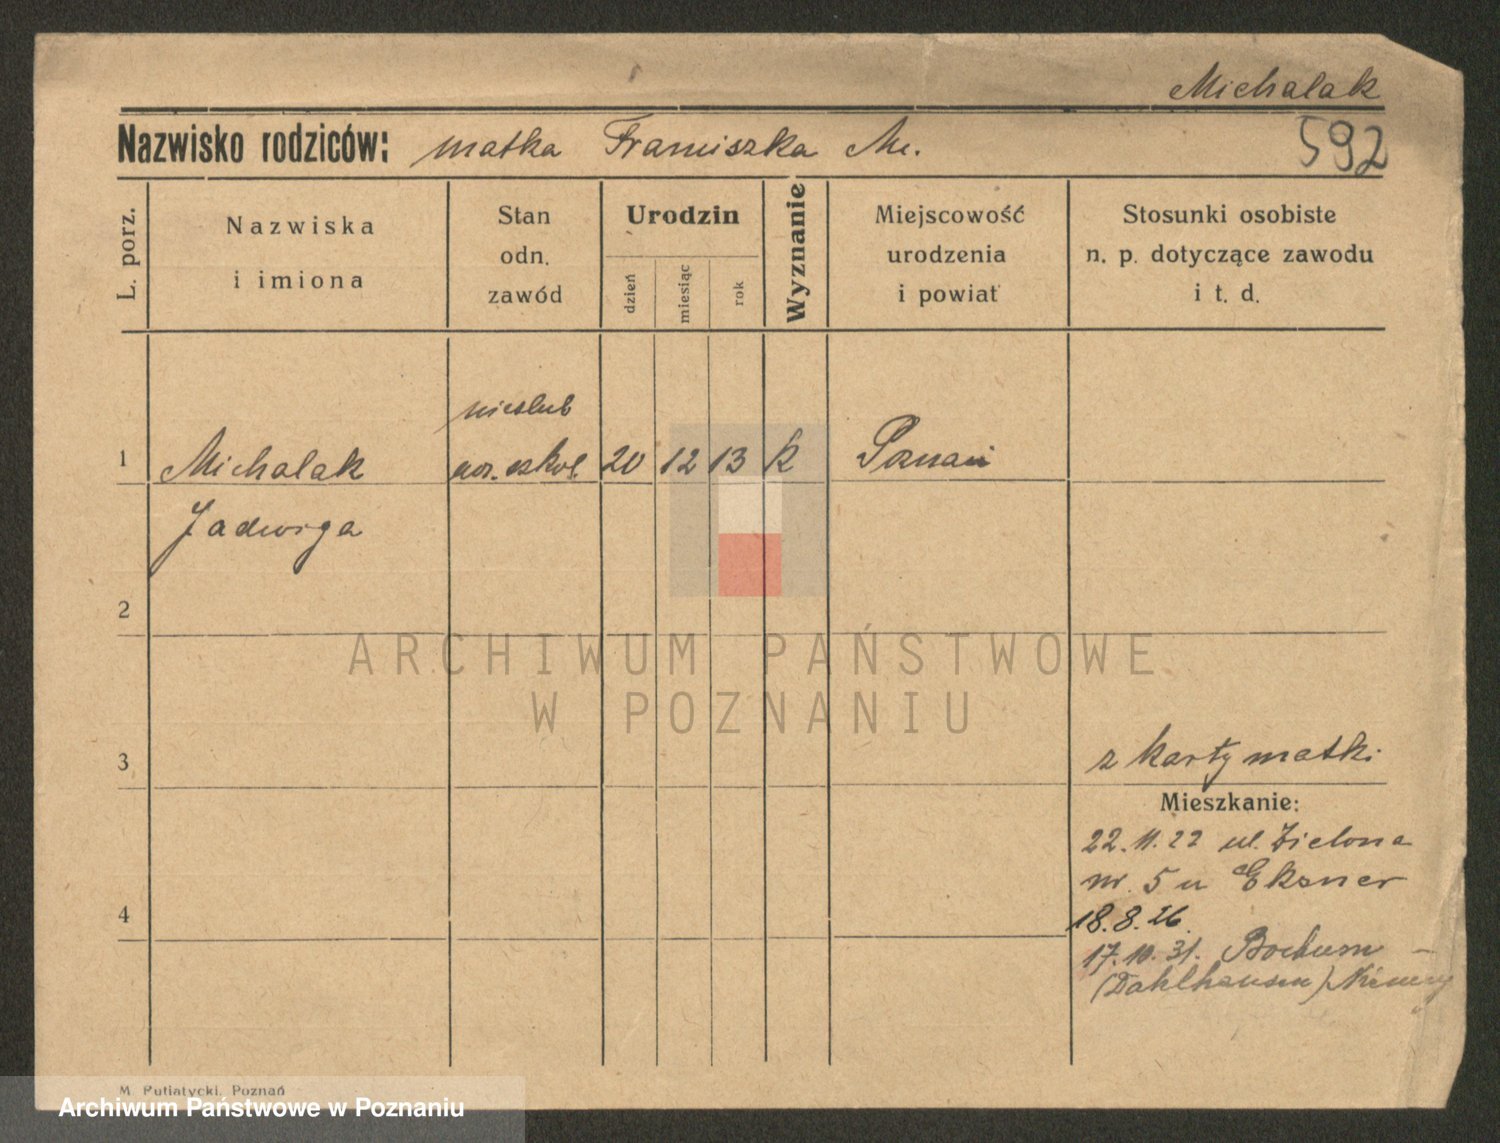 Michalak
Nazwisko rodziców: matka Franciszka M.
592
L. porz.
Nazwiska
i imiona
Stan
odn.
zawód
Urodzin
dzień
miesiąc
rok
Wyznanie
Miejscowość
urodzenia
i powiat
Stosunki osobiste
n. p. dotyczące zawodu
i t. d.
nieslub
1 Michalak szkol. 20 12 13 k Poznań
Jadwiga
2
ARCHIWUM PAŃSTWOWE
W POZNANIU
3 z karty matki
Mieszkanie:
22.11.22 ul. Zielona
nr. 5 u Eksner
4 18.8.26.
17.10.31. Bochum –
(Dahlhausen) Niemcy
M. Putiatycki, Poznań
Archiwum Państwowe w Poznaniu